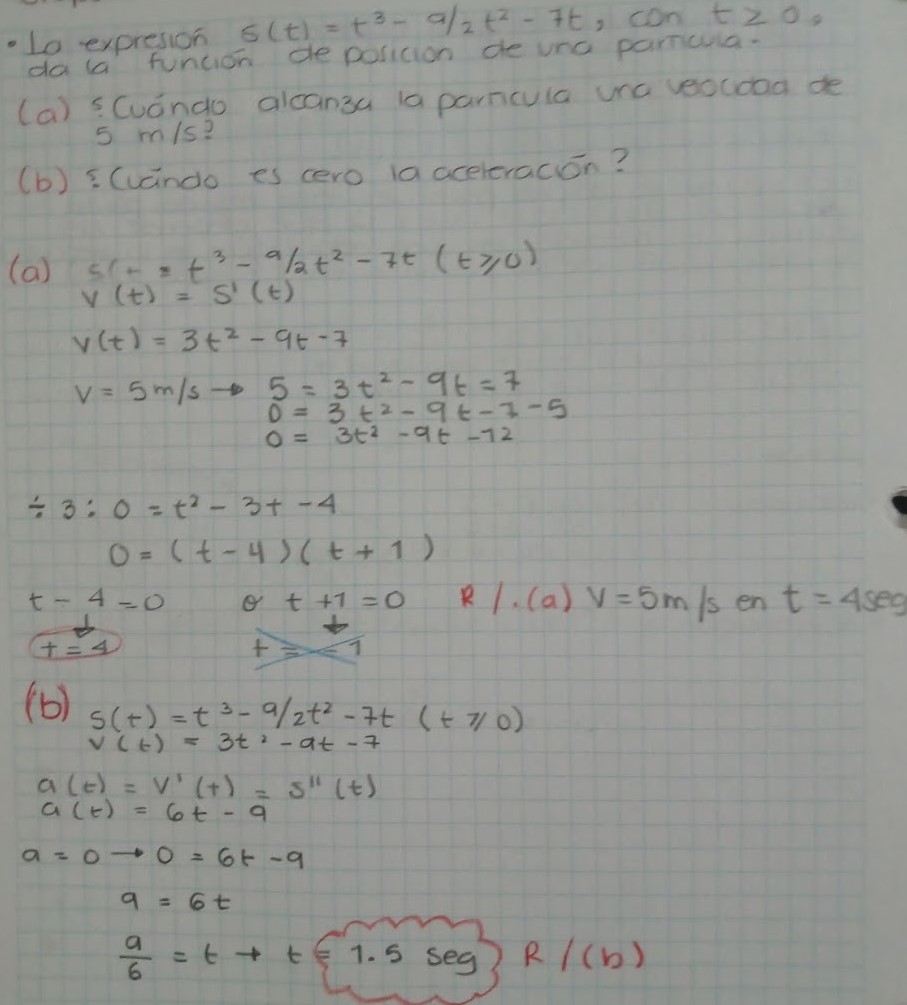 • La expresión s(t) = t³ - 9/2 t² - 7t, con t ≥ 0,
da la función de posición de una partícula.
(a) ¿Cuándo alcanza la partícula una velocidad de
5 m/s?
(b) ¿Cuándo es cero la aceleración?
(a) s(t = t³ - 9/2 t² - 7t (t ≥ 0)
v(t) = s'(t)
v(t) = 3t² - 9t - 7
v = 5 m/s → 5 = 3t² - 9t = 7
0 = 3t² - 9t - 7 - 5
0 = 3t² - 9t - 12
÷ 3 : 0 = t² - 3t - 4
0 = (t - 4)(t + 1)
t - 4 = 0 o t + 1 = 0 R/. (a) V = 5m/s en t = 4seg
t = 4 t = -1
(b) s(t) = t³ - 9/2 t² - 7t (t ≥ 0)
v(t) = 3t² - 9t - 7
a(t) = v'(t) = s''(t)
a(t) = 6t - 9
a = 0 → 0 = 6t - 9
9 = 6t
9/6 = t → t = 1.5 seg R/(b)